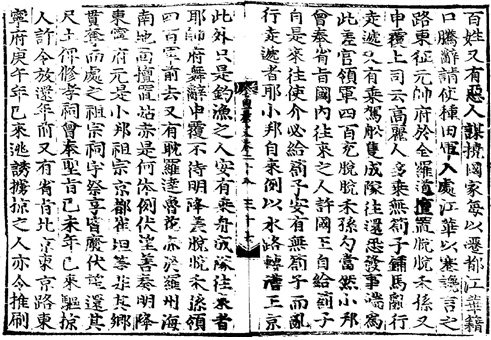 百姓又有惡人謀撓國家每以遷都江華籍
口騰辭請使種田軍入處江華以塞讒言之
路東征元帥府於全羅道擅置脫脫禾孫又
申覆上司云高麗人多乘無箚子鋪馬亂行
走遞又有乘駕船隻成隊往還恐發事端爲
此差官領軍四百充脫脫禾孫勾當然小邦
曾奉省旨國內往來之人許國王自給箚子
自是來往使介必給箚子安有無箚子而亂
行走遞者耶小邦自來例以水路轉漕王京
此外只是釣漁之人安有乘舟成隊往來者
耶帥府舞辭申覆不待明降差脫脫禾孫領
四百軍前去又有耽羅達魯花赤於羅州海
南地面擅置站赤是何体例伏望善奏明降
東寧府元是小邦祖宗京都崔坦等非其鄉
貫奪而處之祖宗祠宇祭享皆廢伏望還其
尺土得修孝祀曾奉聖旨己未年已來驅掠
人許令放還年前又有省旨北京東京路東
寧府庚午年已來逃誘擄掠之人亦令推刷